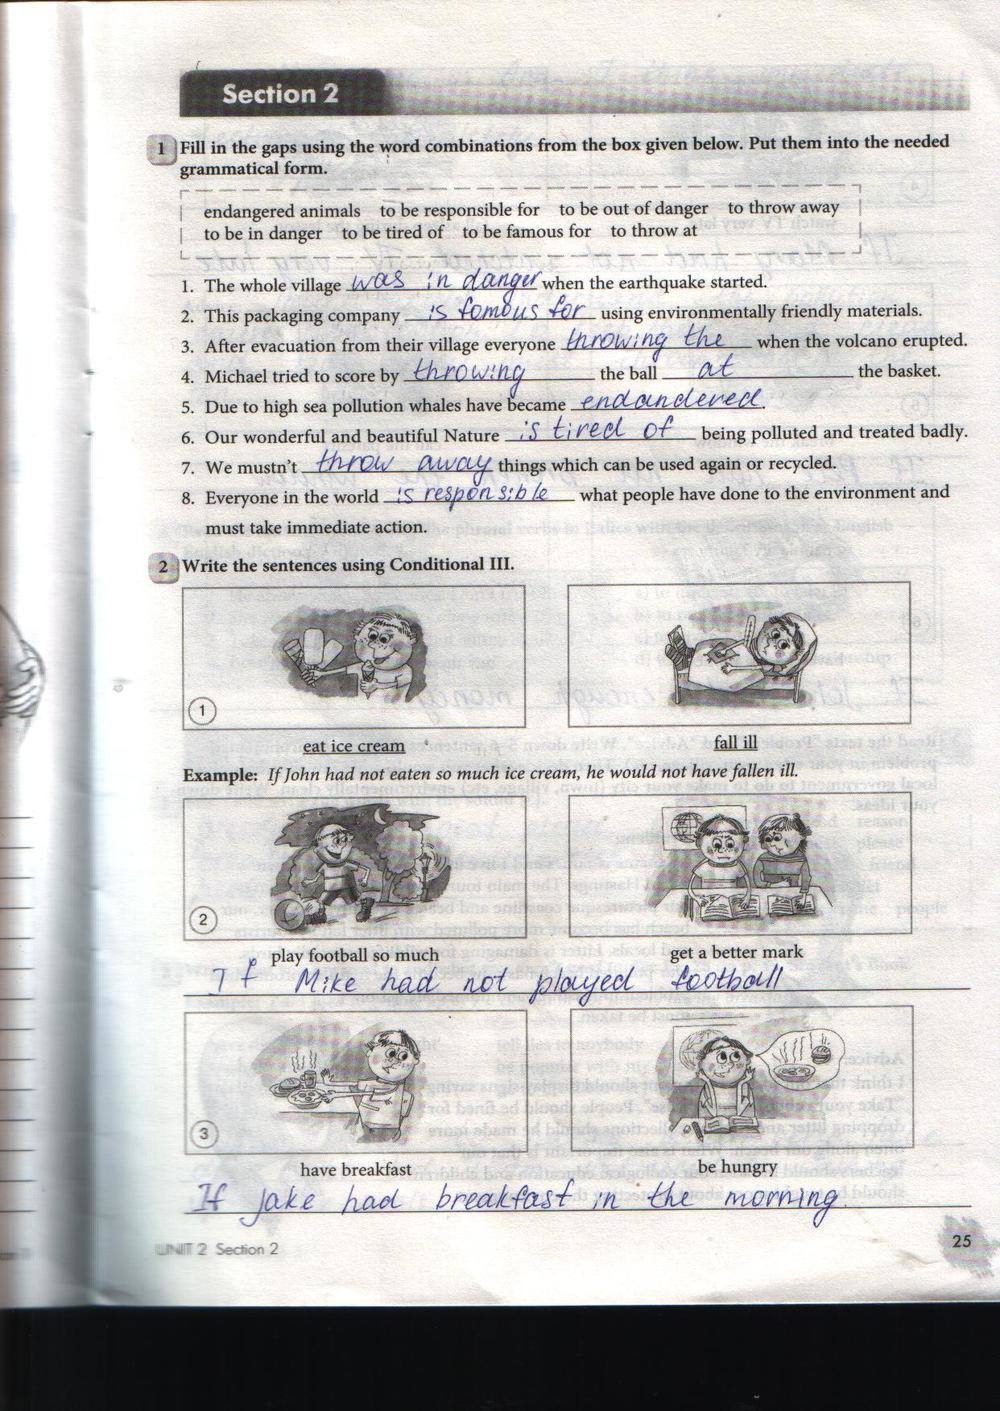 Section 2
1 Fill in the gaps using the word combinations from the box given below. Put them into the needed
grammatical form.
endangered animals to be responsible for to be out of danger to throw away
to be in danger to be tired of to be famous for to throw at
1. The whole village was in danger when the earthquake started.
2. This packaging company is fomous for using environmentally friendly materials.
3. After evacuation from their village everyone throwing the when the volcano erupted.
4. Michael tried to score by throwing the ball at the basket.
5. Due to high sea pollution whales have became endandered.
6. Our wonderful and beautiful Nature is tired of being polluted and treated badly.
7. We mustn't throw away things which can be used again or recycled.
8. Everyone in the world is responsible what people have done to the environment and
must take immediate action.
2 Write the sentences using Conditional III.
1
eat ice cream fall ill
Example: If John had not eaten so much ice cream, he would not have fallen ill.
2
play football so much get a better mark
If Mike had not played football
3
have breakfast be hungry
If Jake had breakfast in the morning.
UNIT 2 Section 2
25